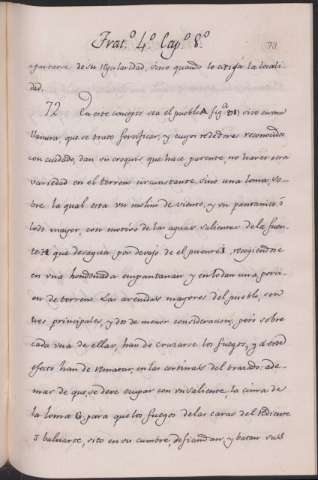 Trat.º 4.º Cap.º 8.º
73
apartarse de su regularidad, sino quando lo exija la locali-
dad.
72 En este concepto sea el pueblo A fig.ª
llanura, que se trata fortificar, y cuyos rededores reconocidos
con cuidado, dan su croquis que hace patente, no haver otra
variedad en el terreno circunstante, sino una loma, so-
bre la qual esta un molino de viento, y un pantano, ó
lodo mayor, con motivo de las aguas salientes de la fuen-
te que desagua por devajo de el puente, recogiendose
en una hondonada empantanan y enlodan una porci-
on de terreno. Las avenidas mayores del pueblo, son
tres principales, y dos de menor consideracion; pero sobre
cada una de ellas, han de cruzarse los fuegos, y á este
efecto han de rematar, en las cortinas del trazado: ade-
mas de que, se deve ocupar con un saliente, la cima de
la loma G, para que los fuegos de las caras del
baluarte, sito en su cumbre, defiendan, y batan sus